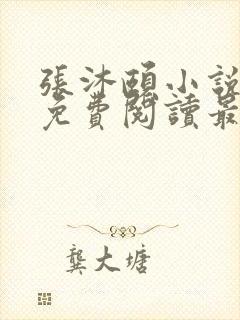 張沐頤小說
免費閱讀最
龔大塘